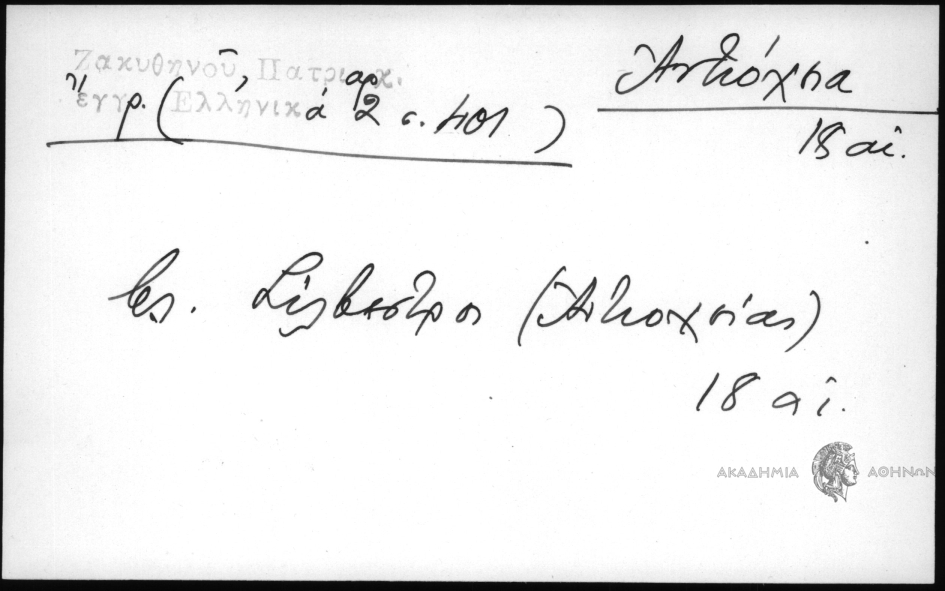 Ζακυθηνοῦ, Πατριαρχ.
ἔγγρ. (Ἑλληνικά 2 σ. 401)
Ἀντιόχεια
18 αἰ.
Σίλβεστρος (Ἀντιοχείας)
18 αἰ.
ΑΚΑΔΗΜΙΑ ΑΘΗΝΩΝ